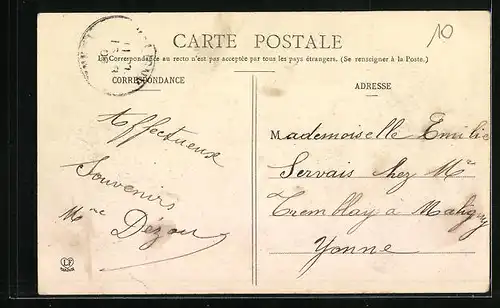 10
CARTE POSTALE
La Correspondance au recto n'est pas acceptée par tous les pays étrangers. (Se renseigner à la Poste.)
CORRESPONDANCE
Affectueux
Souvenirs
Mme Dézou
ADRESSE
Mademoiselle Emilie
Servais chez Mr
Tremblay à Maligny
Yonne